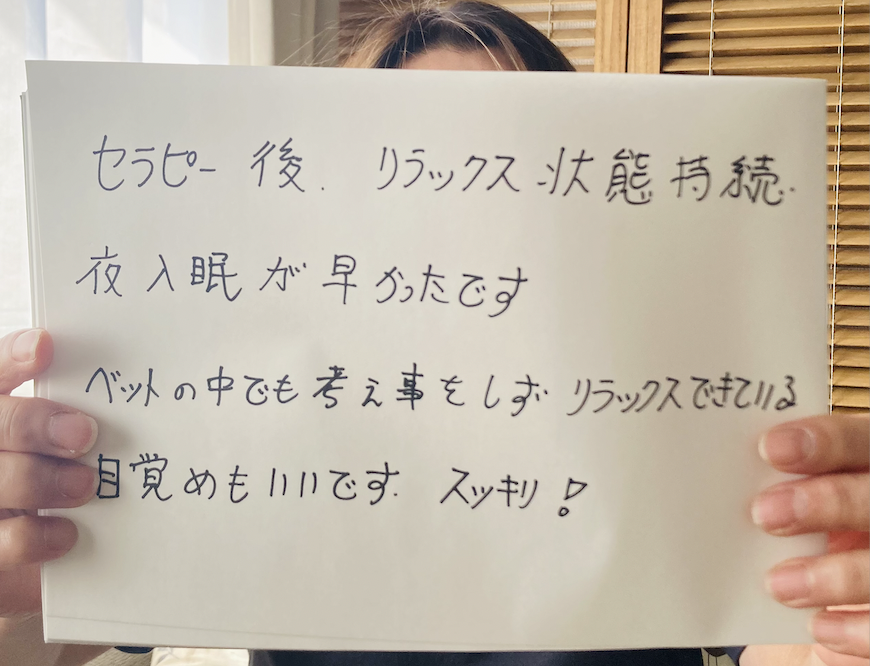 セラピー後、リラックス状態持続.
夜入眠が早かったです
ベットの中でも考え事をしず リラックスできている
目覚めもいいです. スッキリ!